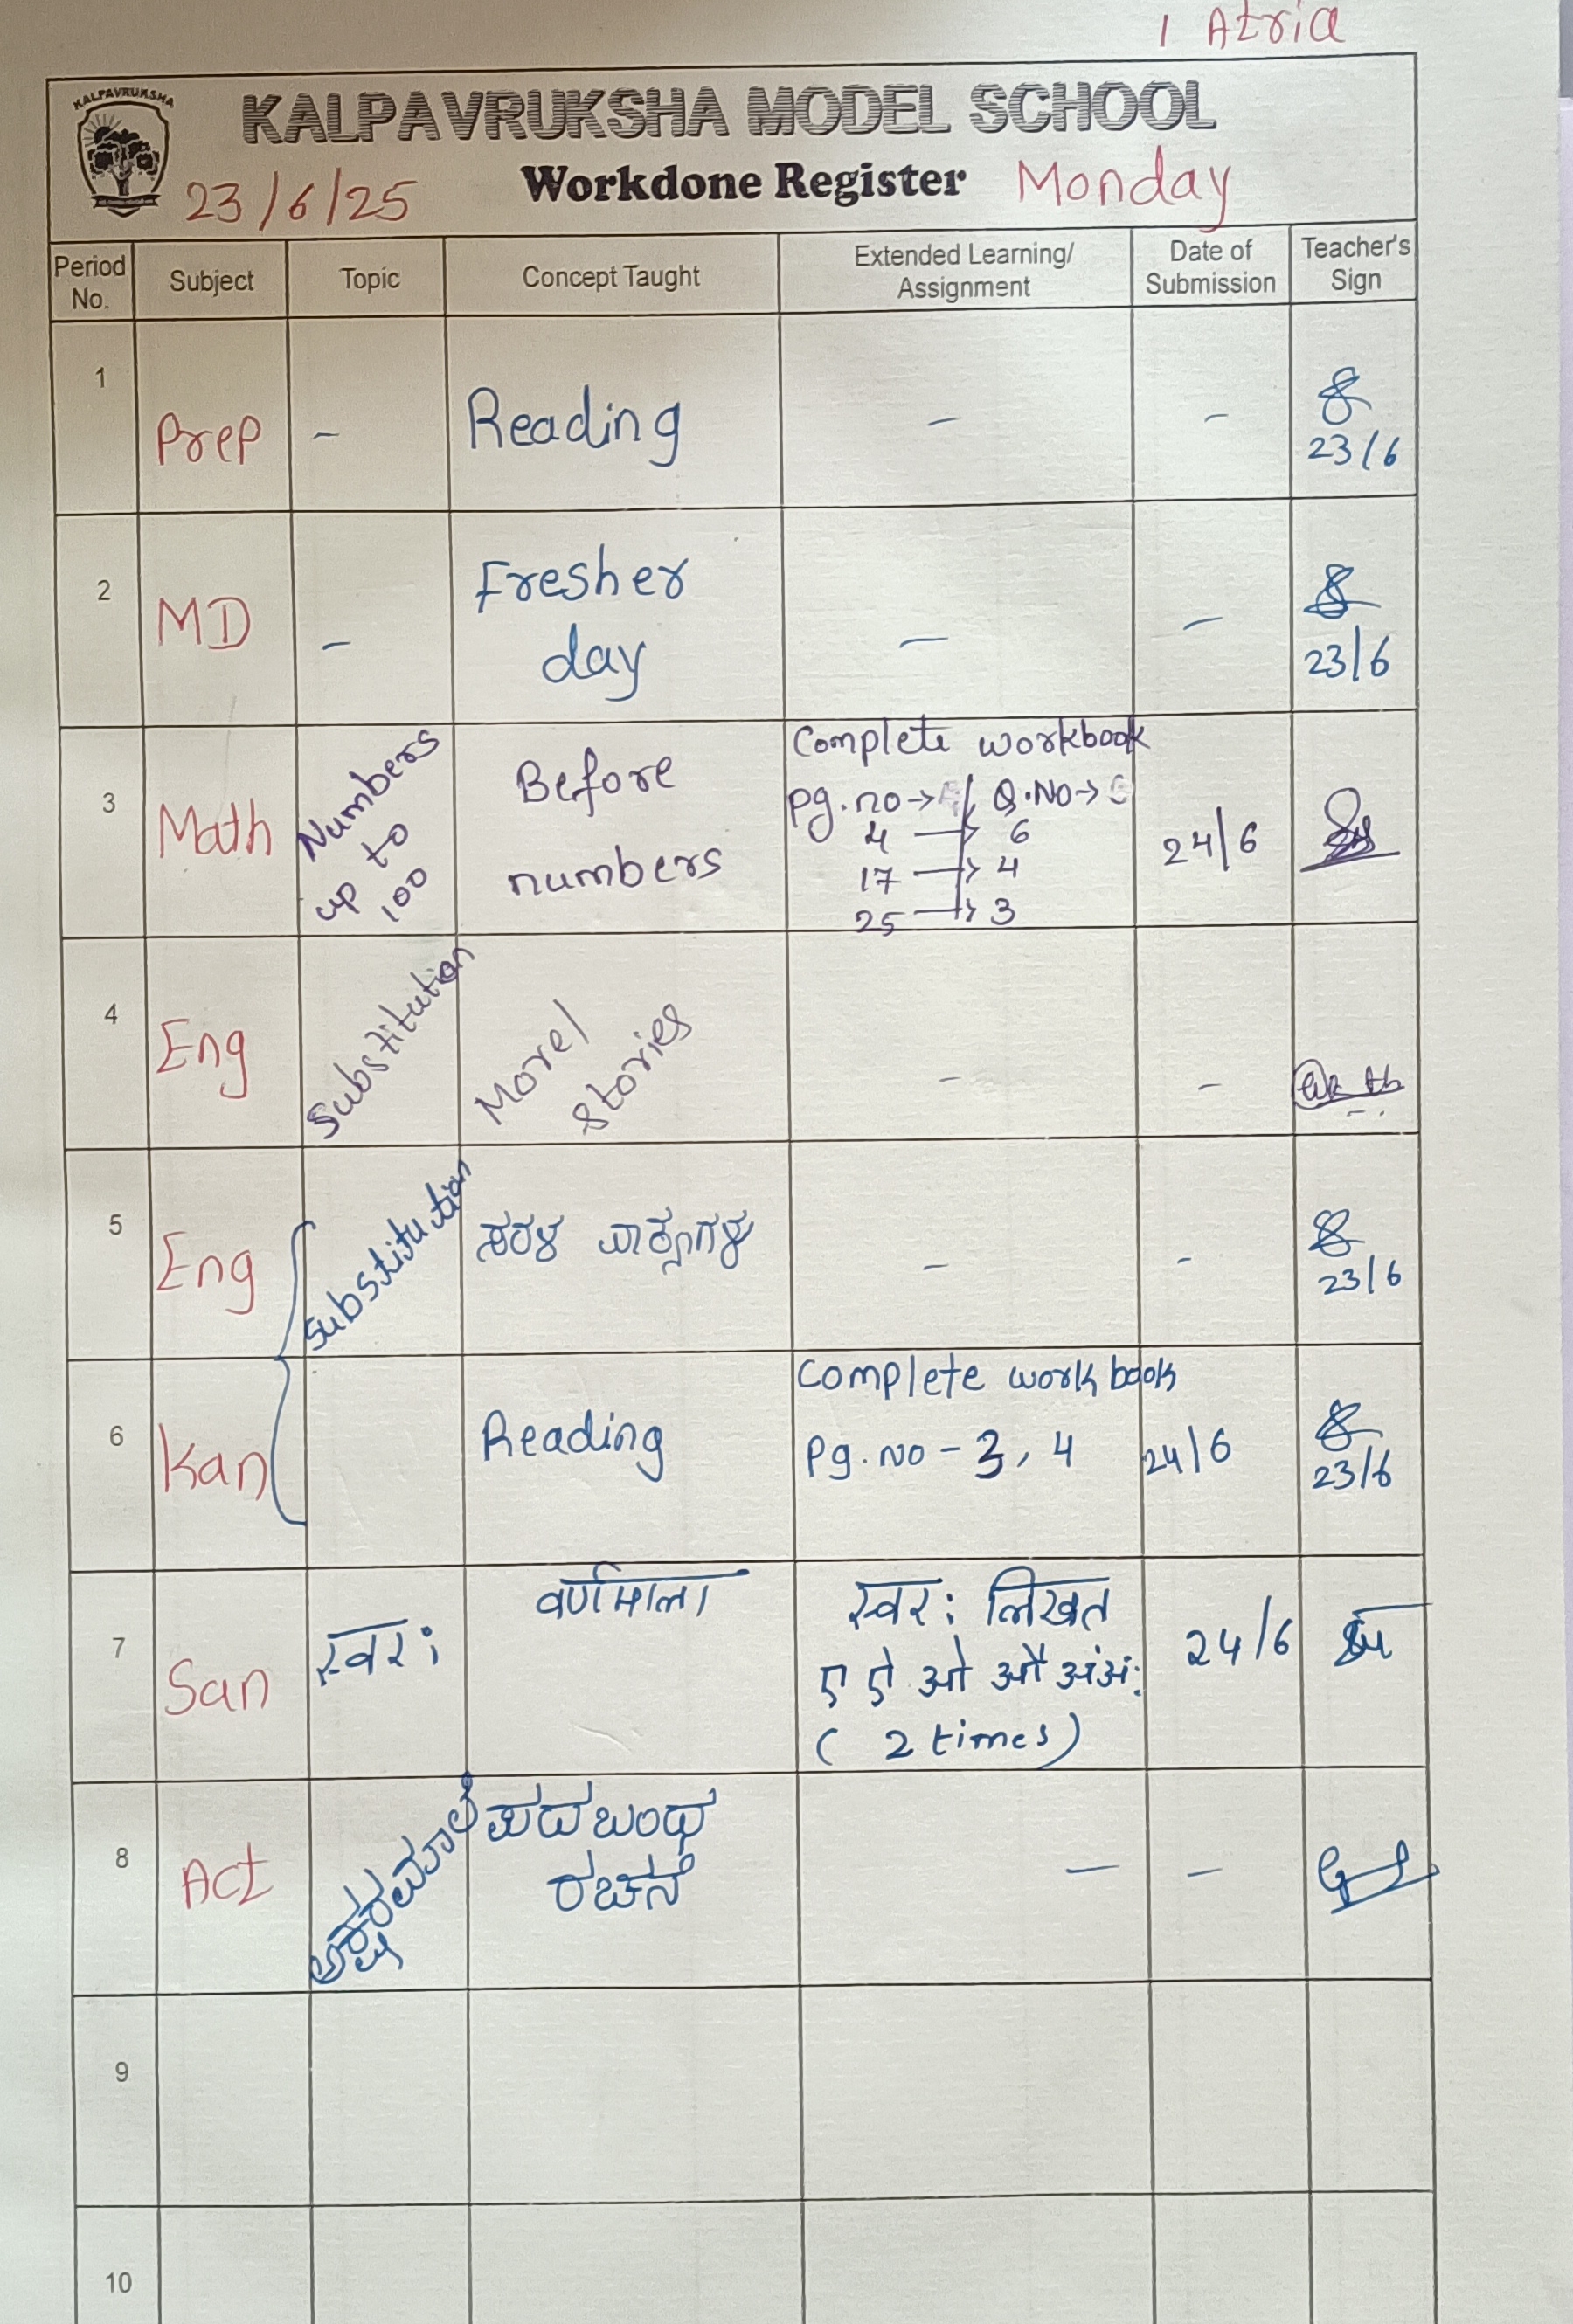 1 Atria
KALPAVRUKSHA
KALPAVRUKSHA MODEL SCHOOL
23/6/25 Workdone Register Monday
Period No. Subject Topic Concept Taught Extended Learning/ Assignment Date of Submission Teacher's Sign
1 Prep - Reading - - 23/6
2 MD - Fresher day - - 23/6
3 Math Numbers up to 100 Before numbers Complete workbook
pg.no→ Q.No→
4 → 6
17 → 4
25 → 3
24/6
4 Eng Substitution Moral stories - -
5 Eng Substitution ಸರಳ ವಾಕ್ಯಗಳು - - 23/6
6 Kan Reading Complete work book
Pg.no - 3, 4
24/6 23/6
7 San स्वर: वर्णमाला स्वर: लिखत
ए ऐ ओ औ अं अ:
( 2 times )
24/6
8 Act ಅಕ್ಷರಮಾಲೆ ಪದಬಂಧ ರಚನೆ - -
9
10